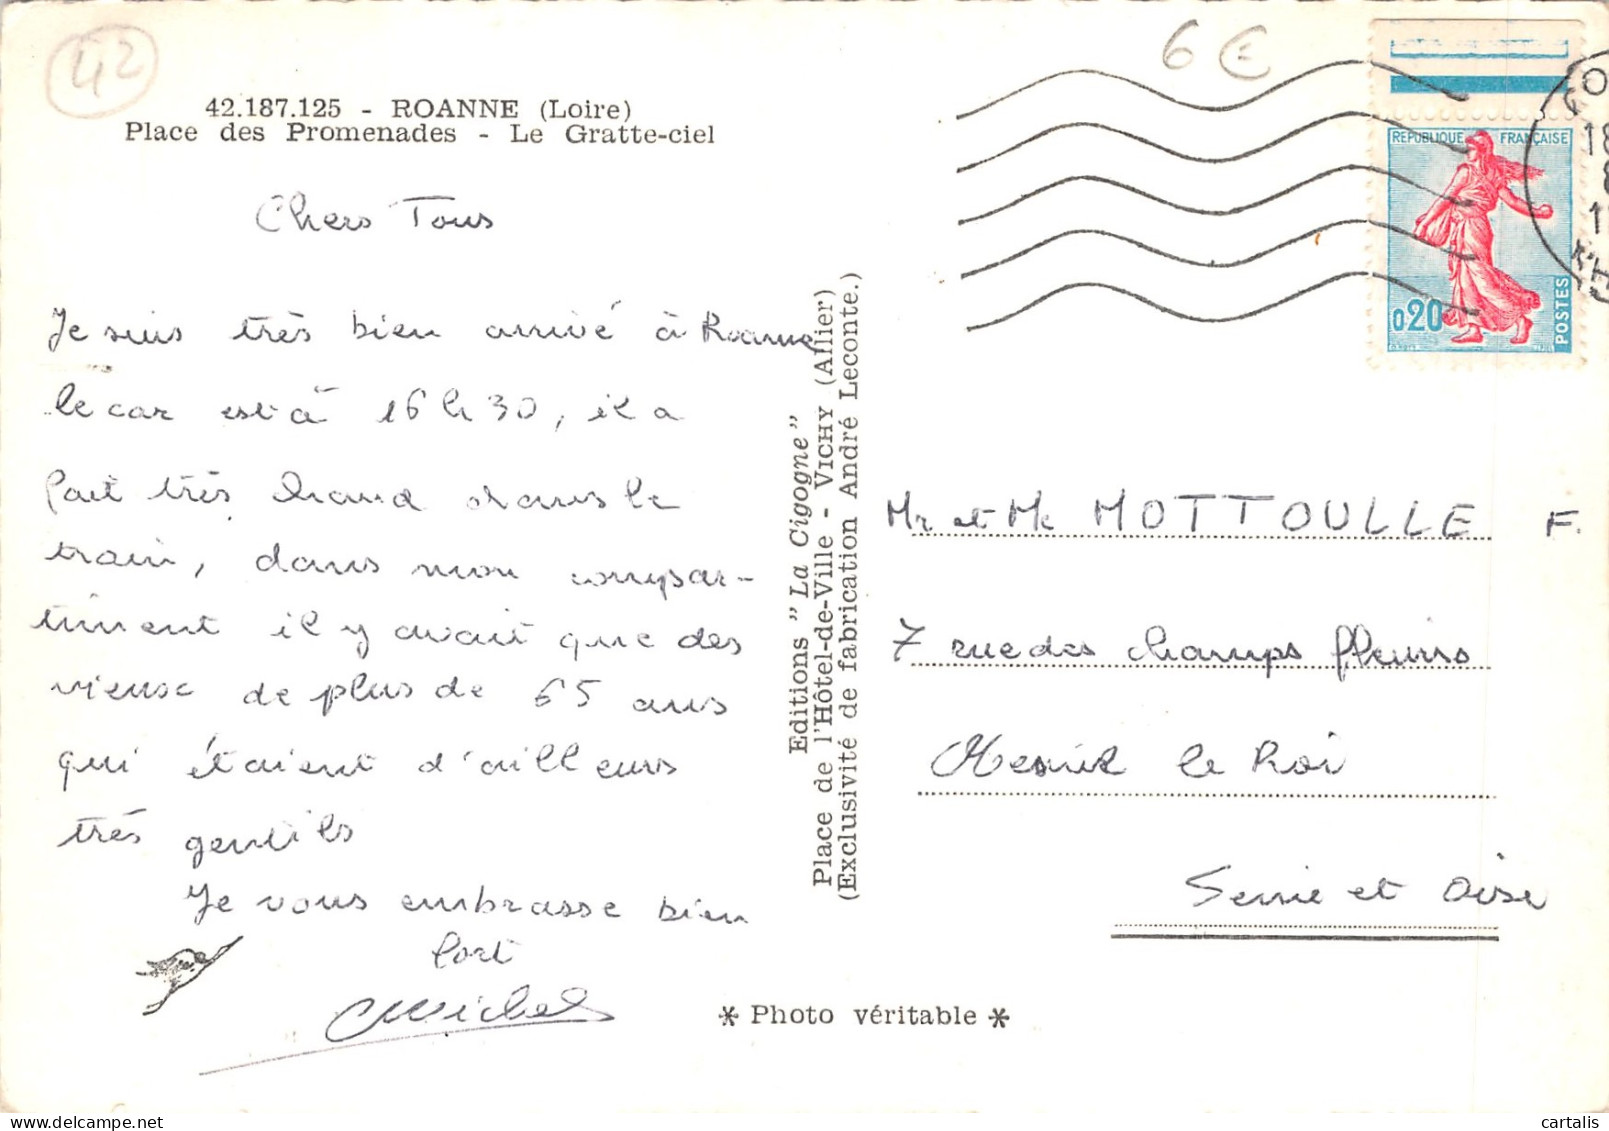 42
6 €
42.187.125 - ROANNE (Loire)
Place des Promenades - Le Gratte-ciel
Chers Tous
Je suis très bien arrivé à Roanne
le car est à 16 h 30, il a
fait très chaud dans le
train, dans mon compar-
timent il y avait que des
vieux de plus de 65 ans
qui étaient d'ailleurs
très gentils
Je vous embrasse bien
fort
Michel
Editions "La Cigogne"
Place de l'Hôtel-de-Ville - VICHY (Allier)
(Exclusivité de fabrication André Leconte.)
REPUBLIQUE FRANÇAISE
0,20
POSTES
18
Mr et Me MOTTOULLE F.
7 rue des champs fleuris
Mesnil le Roi
Seine et Oise
* Photo véritable *
cartalis